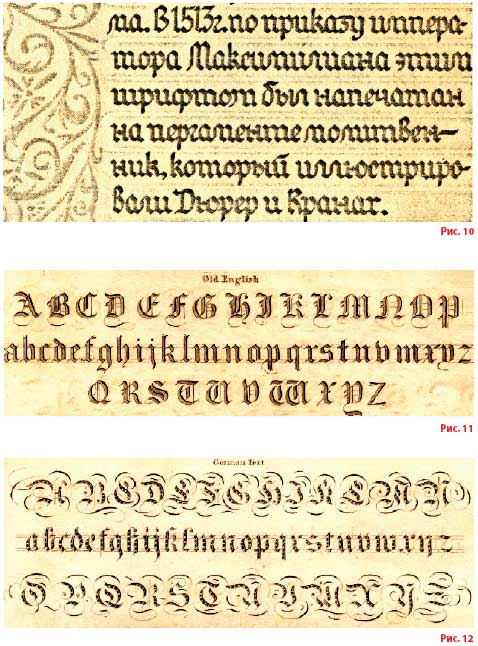 ма. В 1513г. по приказу импера-
тора Максимилиана этим
шрифтом был напечатан
на пергаменте молитвен-
ник, который иллюстриро-
вали Дюрер и Кранах.
Рис. 10
Old English
A B C D E F G H I K L M N O P
a b c d e f g h i j k l m n o p q r s t u v w x y z
Q R S T U V W X Y Z
Рис. 11
German Text
A B C D E F G H I K L M N
a b c d e f g h i j k l m n o p q r s t u v w x y z
O P Q R S T U V W X Y Z
Рис. 12